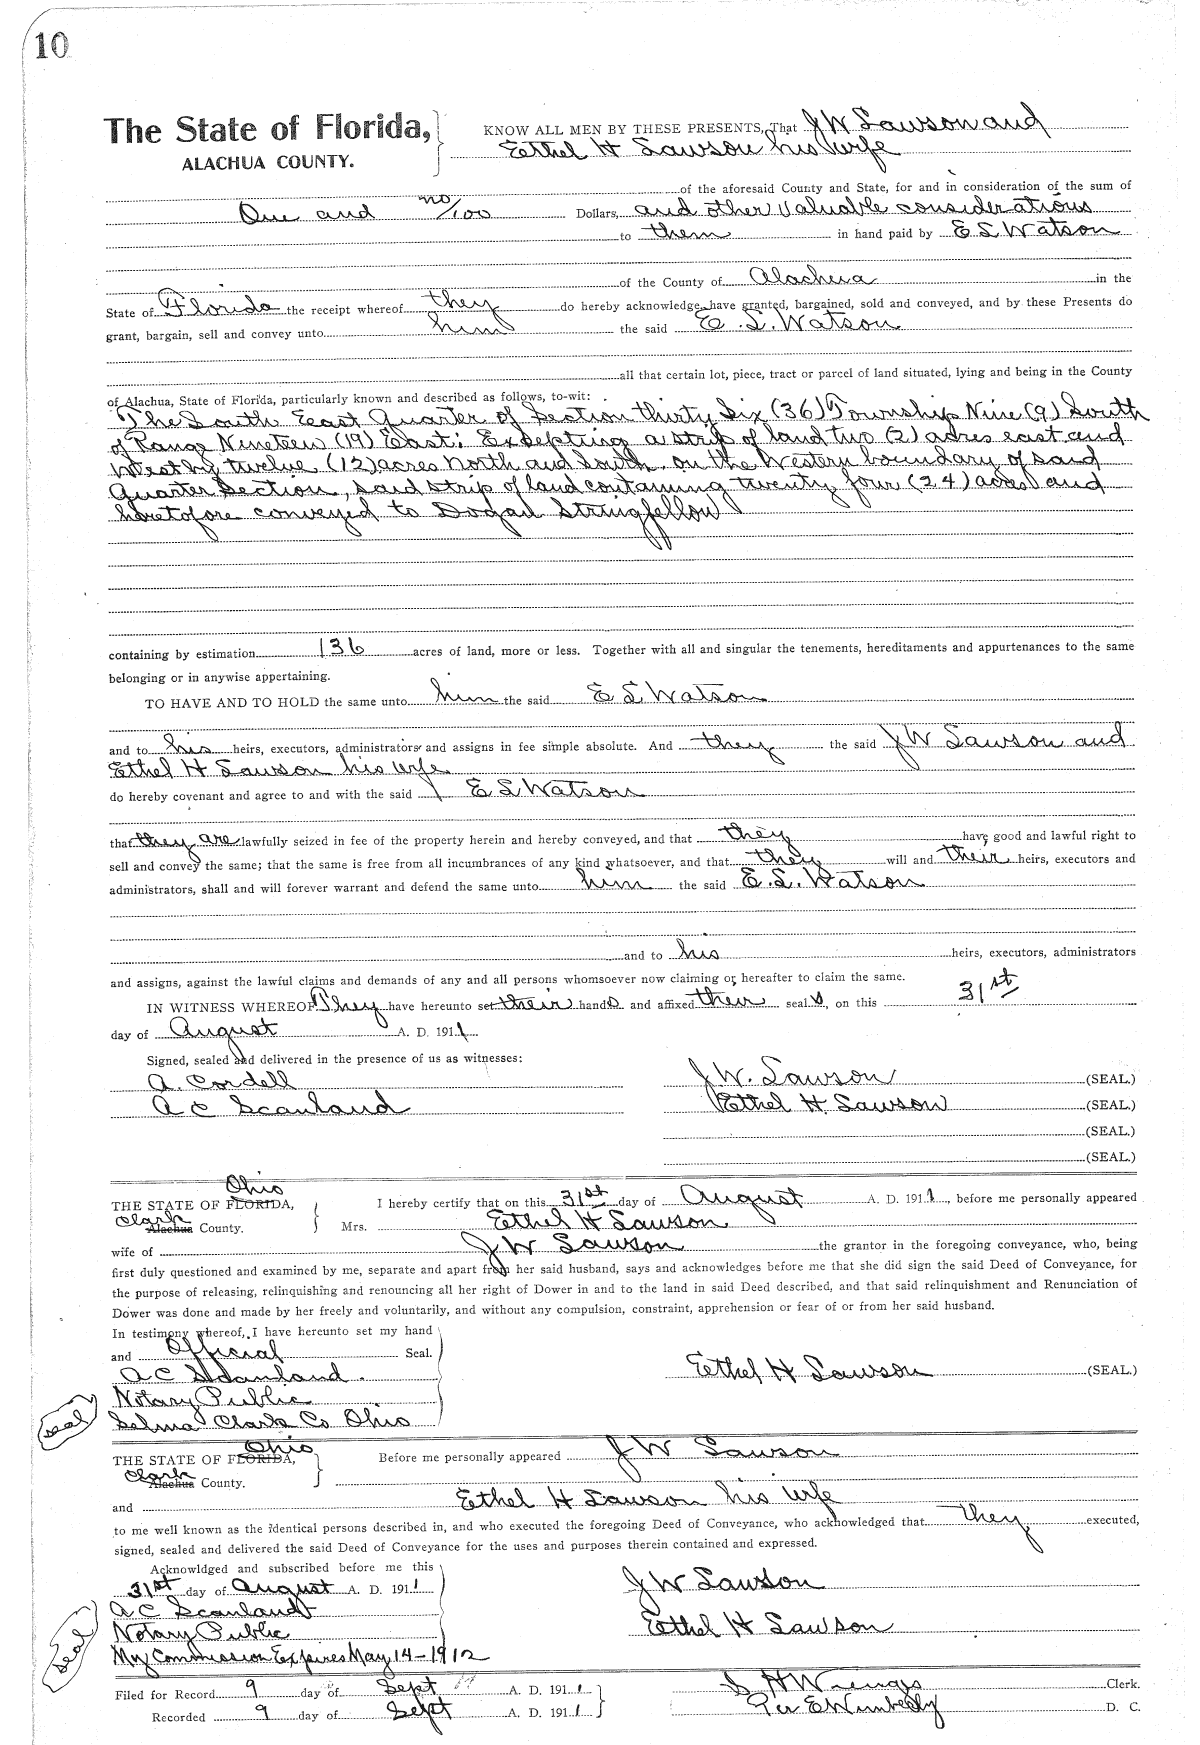 10
The State of Florida,
ALACHUA COUNTY.
KNOW ALL MEN BY THESE PRESENTS, That J W Lawson and
Ethel H Lawson his wife
of the aforesaid County and State, for and in consideration of the sum of
One and no/100 Dollars, and other valuable considerations
to them in hand paid by E L Watson
of the County of Alachua in the
State of Florida the receipt whereof they do hereby acknowledge, have granted, bargained, sold and conveyed, and by these Presents do
grant, bargain, sell and convey unto him the said E. L. Watson
all that certain lot, piece, tract or parcel of land situated, lying and being in the County
of Alachua, State of Florida, particularly known and described as follows, to-wit:
The South East Quarter of Section thirty Six (36) Township Nine (9) South
of Range Nineteen (19) East: Exsepting a strip of land two (2) acres east and
West by twelve (12) acres North and South on the Western boundary of said
Quarter Section, said strip of land containing twenty four (24) acres and
heretofore conveyed to Dogan Stringfellow
containing by estimation 136 acres of land, more or less. Together with all and singular the tenements, hereditaments and appurtenances to the same
belonging or in anywise appertaining.
TO HAVE AND TO HOLD the same unto him the said E L Watson
and to his heirs, executors, administrators and assigns in fee simple absolute. And they the said J W Lawson and
Ethel H Lawson his wife
do hereby covenant and agree to and with the said E L Watson
that they are lawfully seized in fee of the property herein and hereby conveyed, and that they have good and lawful right to
sell and convey the same; that the same is free from all incumbrances of any kind whatsoever, and that they will and their heirs, executors and
administrators, shall and will forever warrant and defend the same unto him the said E. L. Watson
and to his heirs, executors, administrators
and assigns, against the lawful claims and demands of any and all persons whomsoever now claiming or hereafter to claim the same.
IN WITNESS WHEREOF They have hereunto set their hands and affixed their seals, on this 31st
day of August A. D. 1911.
Signed, sealed and delivered in the presence of us as witnesses:
A. Cordell J W. Lawson (SEAL.)
A C Scanland Ethel H Lawson (SEAL.)
(SEAL.)
(SEAL.)
Ohio
THE STATE OF FLORIDA, I hereby certify that on this 31st day of August A. D. 1911, before me personally appeared
Clark Alachua County. Mrs. Ethel H Lawson
wife of J W Lawson the grantor in the foregoing conveyance, who, being
first duly questioned and examined by me, separate and apart from her said husband, says and acknowledges before me that she did sign the said Deed of Conveyance, for
the purpose of releasing, relinquishing and renouncing all her right of Dower in and to the land in said Deed described, and that said relinquishment and Renunciation of
Dower was done and made by her freely and voluntarily, and without any compulsion, constraint, apprehension or fear of or from her said husband.
In testimony whereof, I have hereunto set my hand
and Official Seal.
A C Scanland. Ethel H Lawson (SEAL.)
Notary Public
seal Selma Clark Co Ohio
Ohio
THE STATE OF FLORIDA, Before me personally appeared J W Lawson
Clark Alachua County.
and Ethel H Lawson his wife
to me well known as the identical persons described in, and who executed the foregoing Deed of Conveyance, who acknowledged that they executed,
signed, sealed and delivered the said Deed of Conveyance for the uses and purposes therein contained and expressed.
Acknowldged and subscribed before me this
31st day of August A. D. 1911 J W Lawson
A C Scanland
Notary Public Ethel H Lawson
seal My Commission Expires May 14-1912
Filed for Record 9 day of Sept A. D. 1911 S H Wienges Clerk.
Recorded 9 day of Sept A. D. 1911 Per E Wimberly D. C.